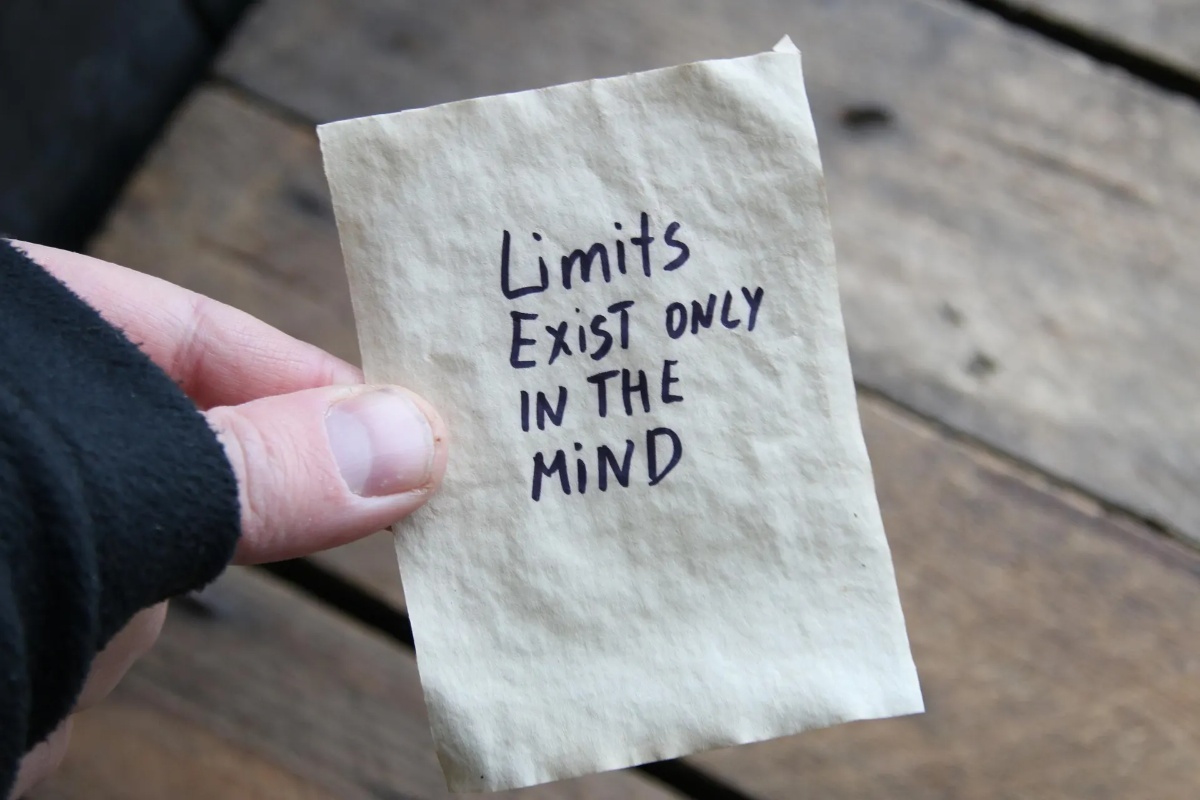 Limits
ExiST ONLY
IN THE
MiND